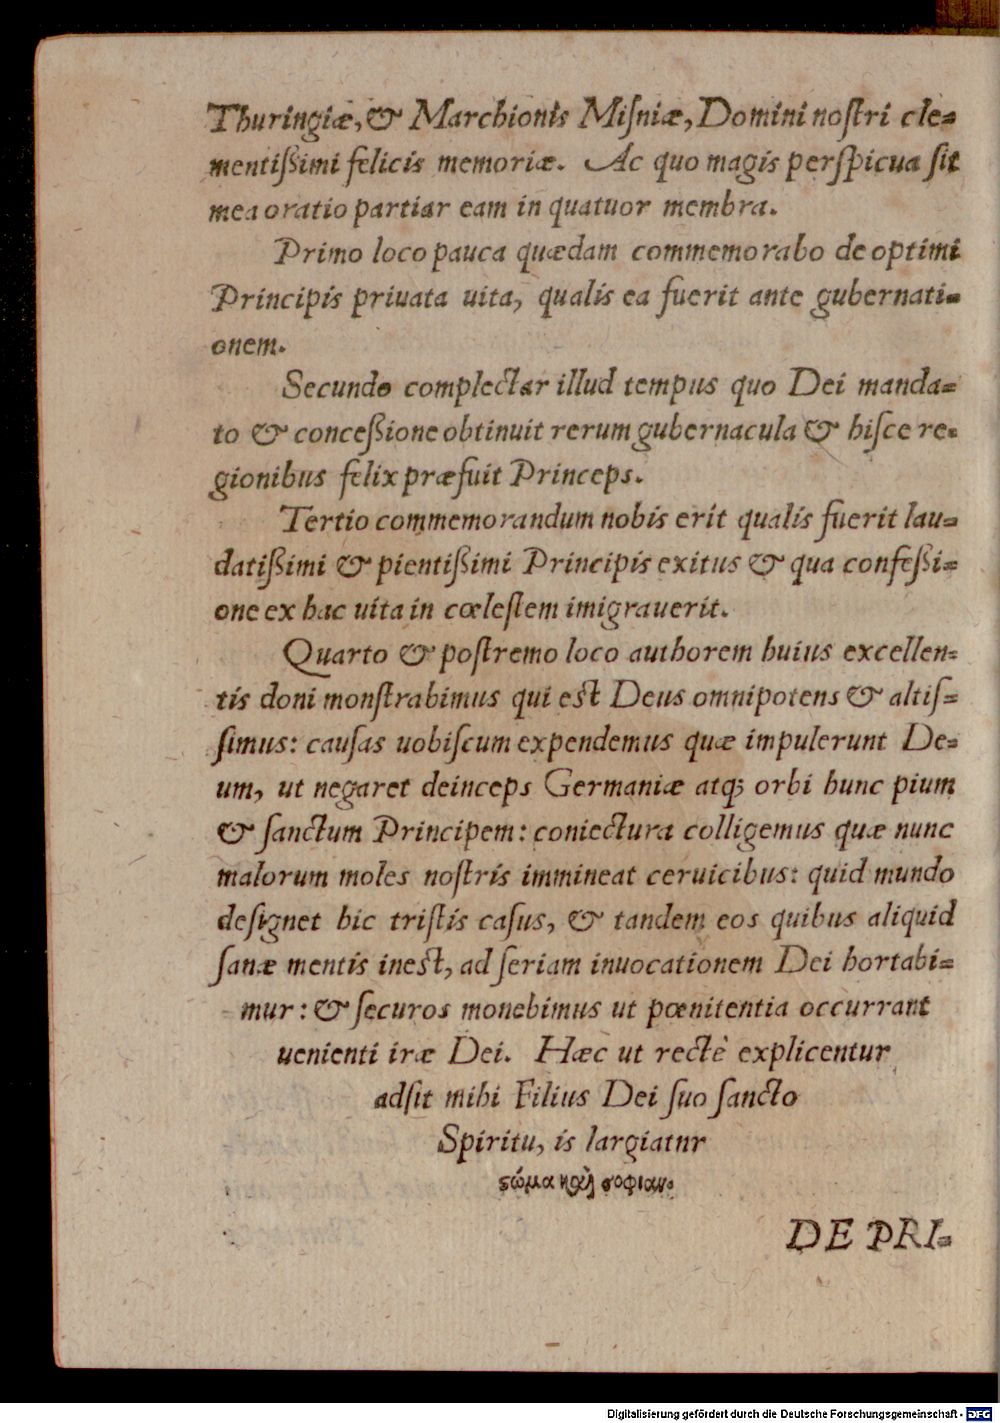 Thuringiæ, & Marchionis Miſniæ, Domini noſtri cle-
mentiſsimi felicis memoriæ. Ac quo magis perſpicua ſit
mea oratio partiar eam in quatuor membra.
Primo loco pauca quædam commemorabo de optimi
Principis priuata uita, qualis ea fuerit ante gubernati-
onem.
Secundo complectar illud tempus quo Dei manda-
to & conceſsione obtinuit rerum gubernacula & hiſce re-
gionibus felix præfuit Princeps.
Tertio commemorandum nobis erit qualis fuerit lau-
datiſsimi & pientiſsimi Principis exitus & qua confeſsi-
one ex hac uita in cœleſtem imigrauerit.
Quarto & poſtremo loco authorem huius excellen-
tis doni monſtrabimus qui est Deus omnipotens & altiſ-
ſimus: cauſas uobiſcum expendemus quæ impulerunt De-
um, ut negaret deinceps Germaniæ atq; orbi hunc pium
& ſanctum Principem: coniectura colligemus quæ nunc
malorum moles noſtris immineat ceruicibus: quid mundo
deſignet hic triſtis caſus, & tandem eos quibus aliquid
ſanæ mentis inest, ad ſeriam inuocationem Dei hortabi-
mur: & ſecuros monebimus ut pœnitentia occurrant
uenienti iræ Dei. Hæc ut rectè explicentur
adſit mihi Filius Dei ſuo ſancto
Spiritu, is largiatnr
ςώμα καὶ σοφιαν.
DE PRI-
Digitalisierung gefördert durch die Deutsche Forschungsgemeinschaft - DFG